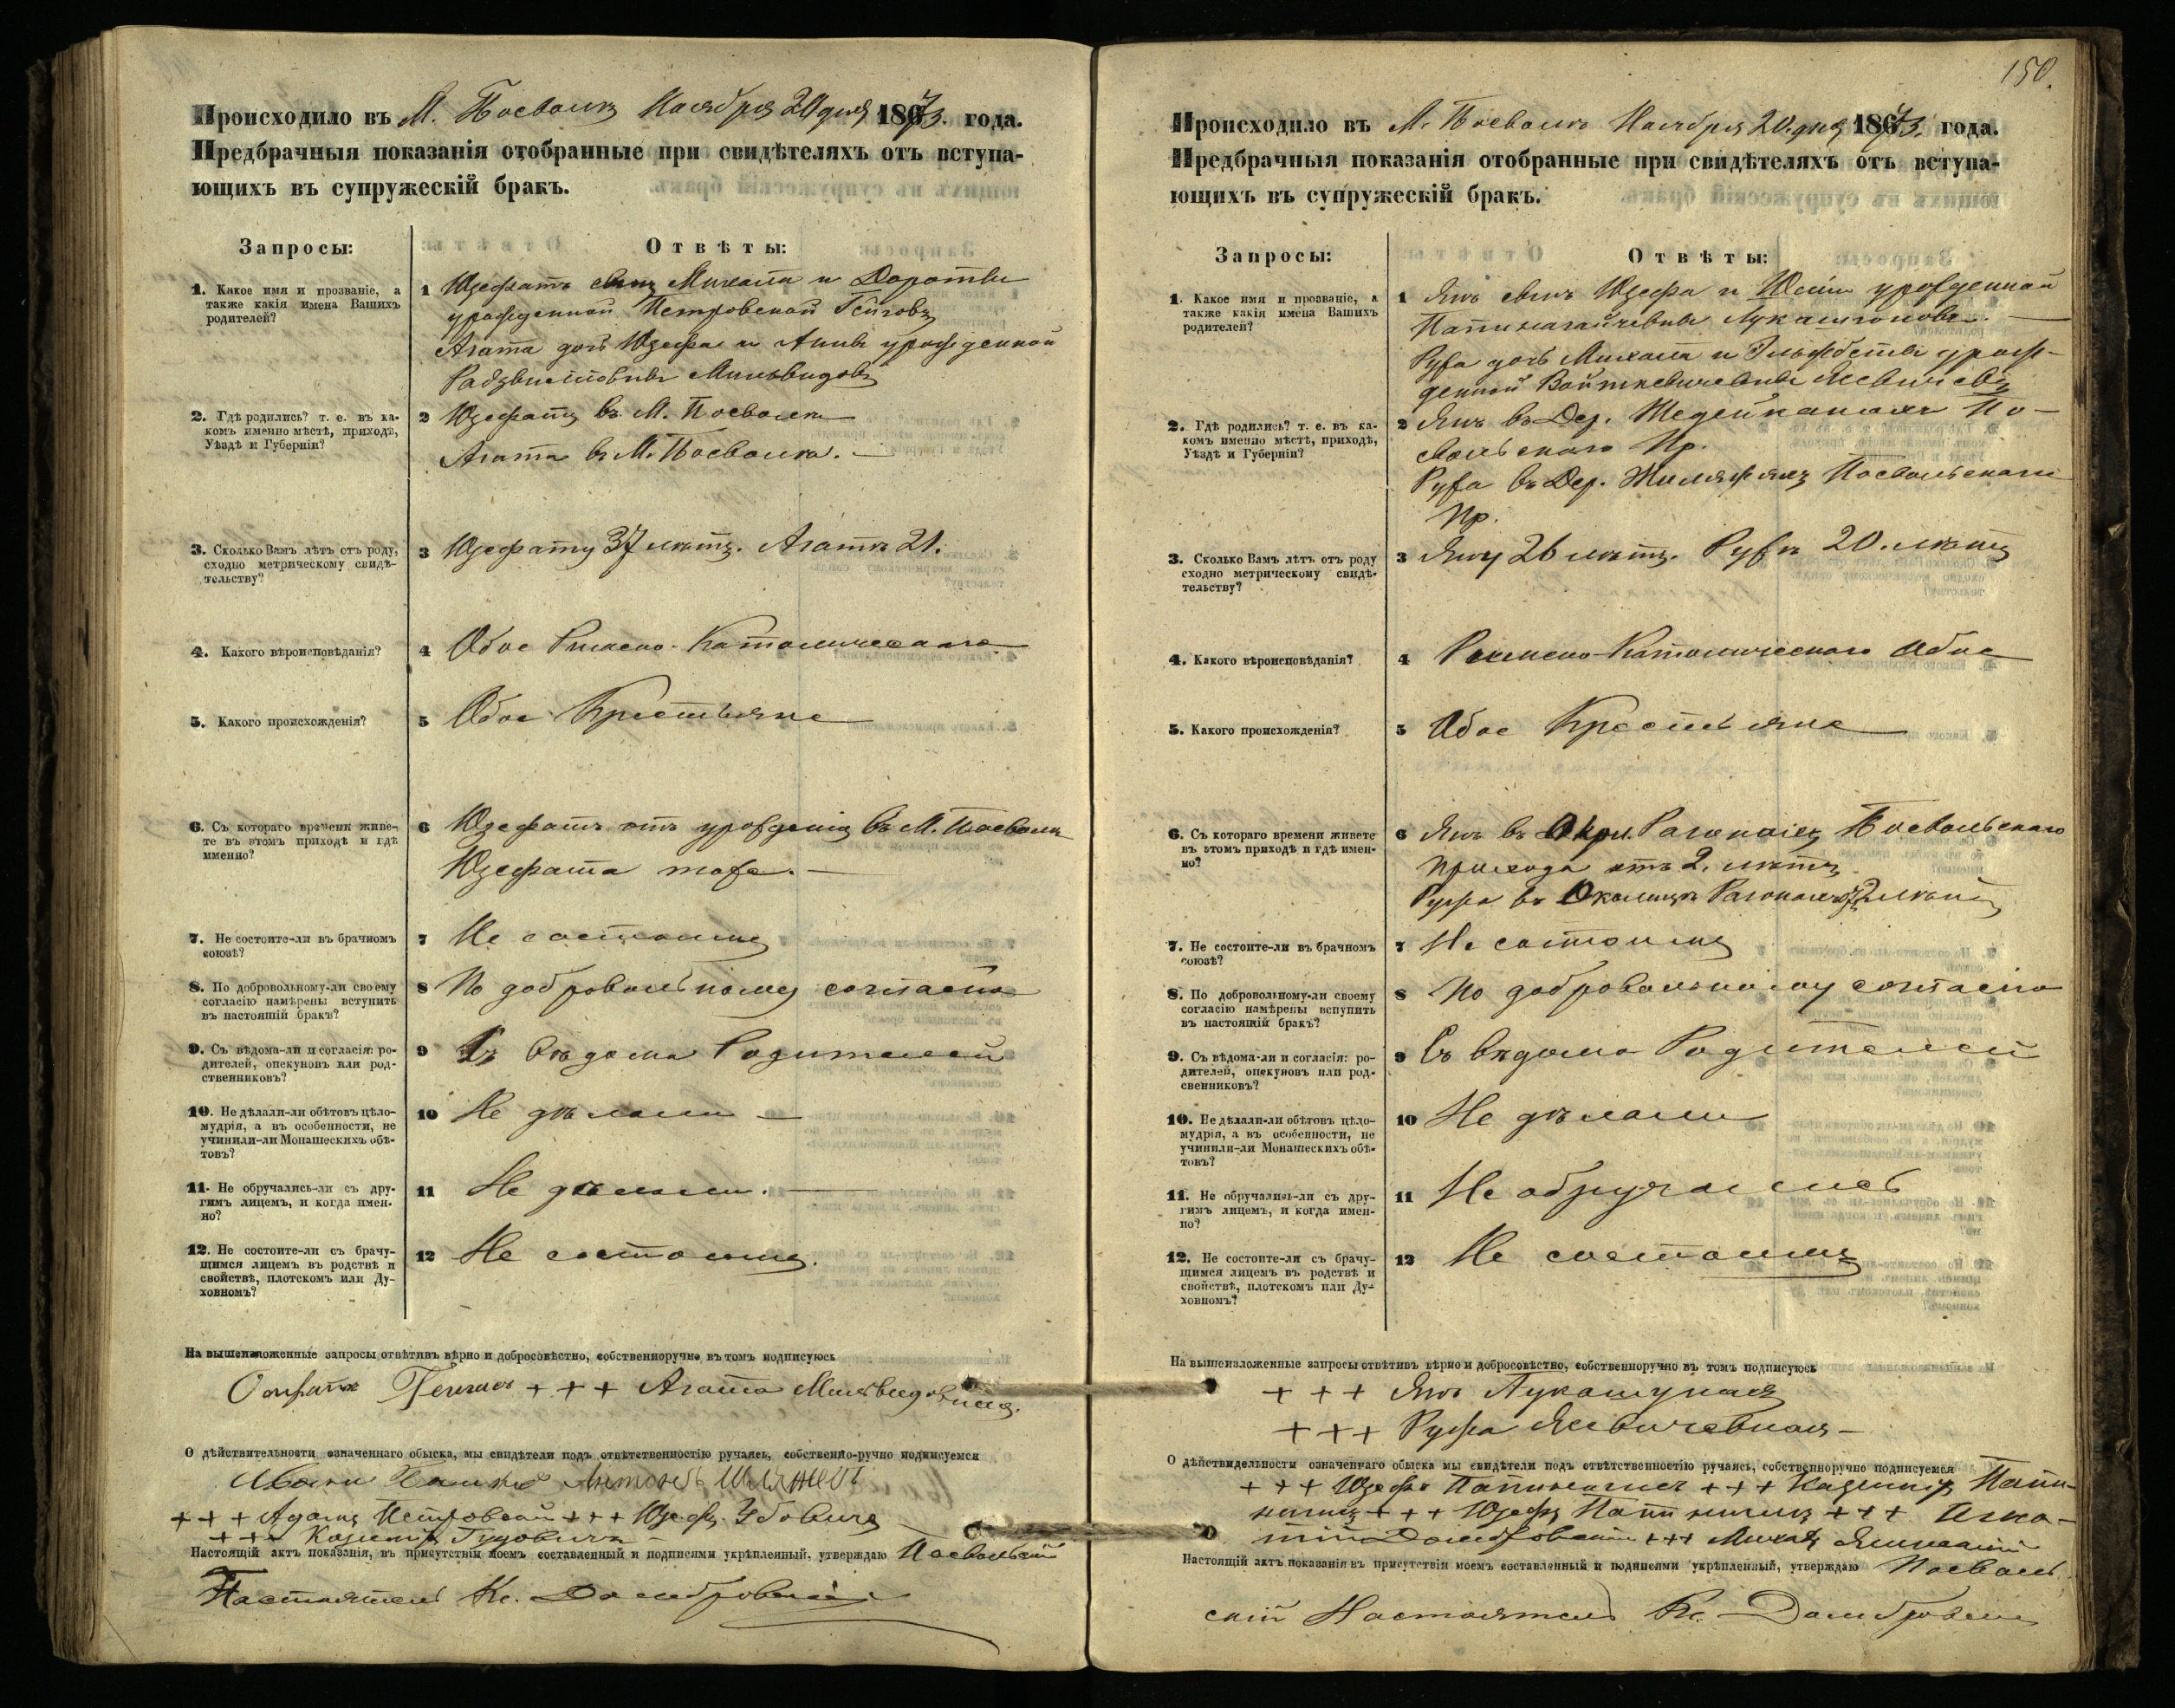 Происходило въ М. Посволь Ноября 20 дня 1873. года.
Предбрачныя показанія отобранные при свидѣтеляхъ отъ вступа-
ющихъ въ супружескій бракъ.
Запросы:
Отвѣты:
1. Какое имя и прозваніе, а
также какія имена Вашихъ
родителей?
1 Юзефатъ сынъ Михала и Дороты
урожденной Петровской
Агата дочь Юзефа и Анны урожденной
2. Гдѣ родились? т. е. въ ка-
комъ именно мѣстѣ, приходѣ,
Уѣздѣ и Губерніи?
2 Юзефатъ въ М. Посволѣ
Агата въ М. Посволѣ.
3. Сколько Вамъ лѣтъ отъ роду,
сходно метрическому свидѣ-
тельству?
3 Юзефату 37 лѣтъ. Агатѣ 21.
4. Какого вѣроисповѣданія?
4 Обое Римско-Католическаго
5. Какого происхожденія?
5 Обое Крестьяне
6. Съ котораго времени живе-
те въ этомъ приходѣ и гдѣ
именно?
6 Юзефатъ отъ урожденія въ М. Посволѣ
Юзефата тоже.
7. Не состоите-ли въ брачномъ
союзѣ?
7 Не состоимъ
8. По добровольному-ли своему
согласію намѣрены вступить
въ настоящій бракъ?
8 По добровольному согласію
9. Съ вѣдома-ли и согласія: ро-
дителей, опекуновъ или род-
ственниковъ?
9 Съ вѣдома Родителей
10. Не дѣлали-ли обѣтовъ цѣло-
мудрія, а въ особенности, не
учинили-ли Монашескихъ обѣ-
товъ?
10 Не дѣлали
11. Не обручались-ли съ дру-
гимъ лицемъ, и когда имен-
но?
11 Не дѣлали.
12. Не состоите-ли съ брачу-
щимся лицемъ въ родствѣ и
свойствѣ, плотскомъ или Ду-
ховномъ?
12 Не состоимъ.
На вышеизложенные запросы отвѣтивъ вѣрно и добросовѣстно, собственноручно въ томъ подписуюсь
+ + + Агата
О дѣйствительности означеннаго обыска, мы свидѣтели подъ отвѣтственностію ручаясь, собственно-ручно подписуемся
+ + + Адамъ Петровскій + + + Юзефъ
+ + + Казимiръ
Настоящій актъ показанія, въ присутствіи моемъ составленный и подписями укрѣпленный, утверждаю Посвольскій
Настоятель Кс. Домбровскій
150.
Происходило въ М. Посволь Ноября 20. дня 1873. года.
Предбрачныя показанія отобранные при свидѣтеляхъ отъ вступа-
ющихъ въ супружескій бракъ.
Запросы:
Отвѣты:
1. Какое имя и прозваніе, а
также какія имена Вашихъ
родителей?
1 Янъ сынъ Юзефа и урожденной
Руфа дочь Михала и Эльжбеты урож-
денной Войткевичевны
2. Гдѣ родились? т. е. въ ка-
комъ именно мѣстѣ, приходѣ,
Уѣздѣ и Губерніи?
2 Янъ въ Дер. По-
свольскаго Пр.
Руфа въ Дер. Посвольскаго
Пр.
3. Сколько Вамъ лѣтъ отъ роду
сходно метрическому свидѣ-
тельству?
3 Яну 26 лѣтъ. Руфѣ 20. лѣтъ
4. Какого вѣроисповѣданія?
4 Римско-Католическаго Обое
5. Какого происхожденія?
5 Обое Крестьяне
6. Съ котораго времени живете
въ этомъ приходѣ и гдѣ имен-
но?
6 Янъ въ Посвольскаго
прихода отъ 2. лѣтъ
Руфа въ Околицѣ
7. Не состоите-ли въ брачномъ
союзѣ?
7 Не состоимъ
8. По добровольному-ли своему
согласію намѣрены вспупить
въ настоящій бракъ?
8 По добровольному согласію
9. Съ вѣдома-ли и согласія: ро-
дителей, опекуновъ или род-
свенниковъ?
9 Съ вѣдома Родителей
10. Не дѣлали-ли обѣтовъ цѣло-
мудрія, а въ особенности, не
учинили-ли Монашескихъ обѣ-
товъ?
10 Не дѣлали
11. Не обручались-ли съ дру-
гимъ лицемъ, и когда имен-
но?
11 Не обручались
12. Не состоите-ли съ брачу-
щимся лицемъ въ родствѣ и
свойствѣ, плотскомъ или Ду-
ховномъ?
12 Не состоимъ
На вышеизложенные запросы отвѣтивъ вѣрно и добросовѣстно, собственноручно въ томъ подписуюсь
+ + + Янъ
+ + + Руфа
О дѣйствидельности означеннаго обыска мы свидѣтели подъ отвѣтственностію ручаясь, собственноручно подписуемся
+ + + Юзефъ + + + Казимiръ
+ + + Юзефъ + + +
Домбровскій + + + Михалъ
Настоящій актъ показанія въ присутствіи моемъ составленный и подписями укрѣпленный, утверждаю Посволь-
скій Настоятель Кс. Домбровскій